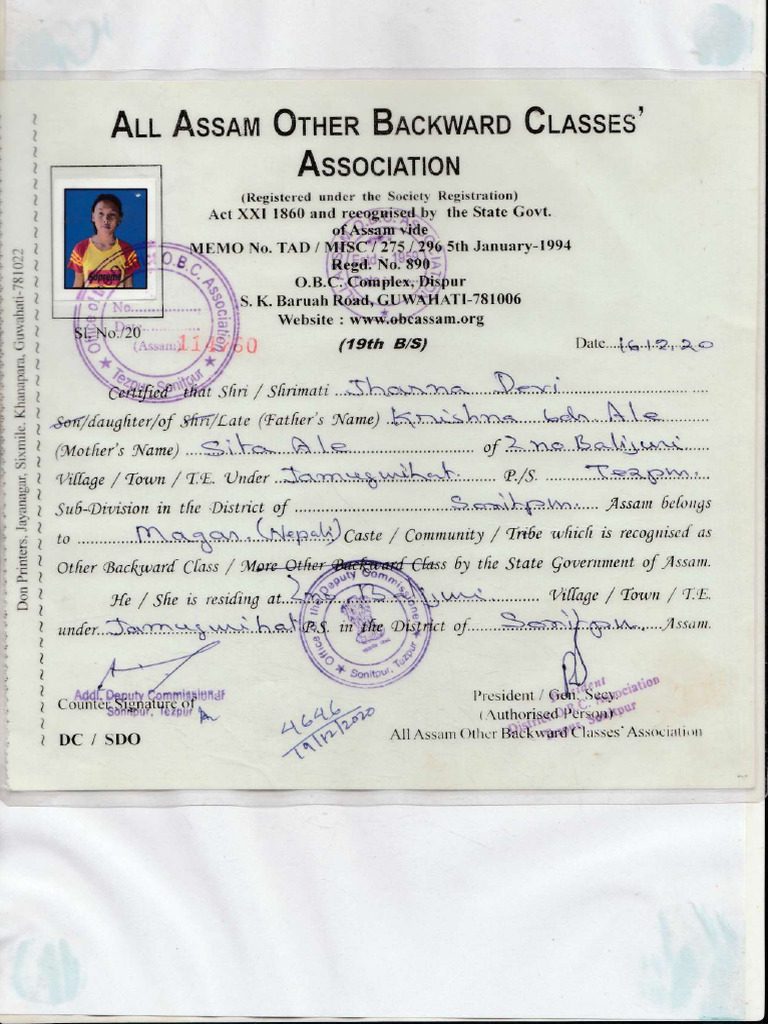 ALL ASSAM OTHER BACKWARD CLASSES'
ASSOCIATION
(Registered under the Society Registration)
Act XXI 1860 and recognised by the State Govt.
of Assam vide
MEMO No. TAD / MISC / 275 / 296 5th January-1994
Regd. No. 890
O.B.C. Complex, Dispur
S. K. Baruah Road, GUWAHATI-781006
Website : www.obcassam.org
Supreme
Sl. No./20
(Assam) 114760
(19th B/S)
Date...16.12.20
Certified that Shri / Shrimati Jharna Devi
Son/daughter/of Shri/Late (Father's Name) Krishna bdr Ale
(Mother's Name) Sita Ale of 2 no Balijuri
Village / Town / T.E. Under Jamugurihat. P./S. Tezpur.
Sub-Division in the District of Sonitpur. Assam belongs
to Magar. (Nepali) Caste / Community / Tribe which is recognised as
Other Backward Class / More Other Backward Class by the State Government of Assam.
He / She is residing at 2no Balijuri Village / Town / T.E.
under Jamugurihat P.S. in the District of Sonitpur. Assam.
Office of the Deputy Commissioner
Sonitpur, Tezpur
Addl. Deputy Commissional
Sonitpur, Tezpur
Counter Signature of
DC / SDO
4646
19/12/2020
President / Gen. Secy.
(Authorised Person)
All Assam Other Backward Classes' Association
President
District O.B.C. Association
Sonitpur
O.B.C. Association
Tezpur Sonitpur
Don Printers, Jayanagar, Sixmile, Khanapara, Guwahati-781022